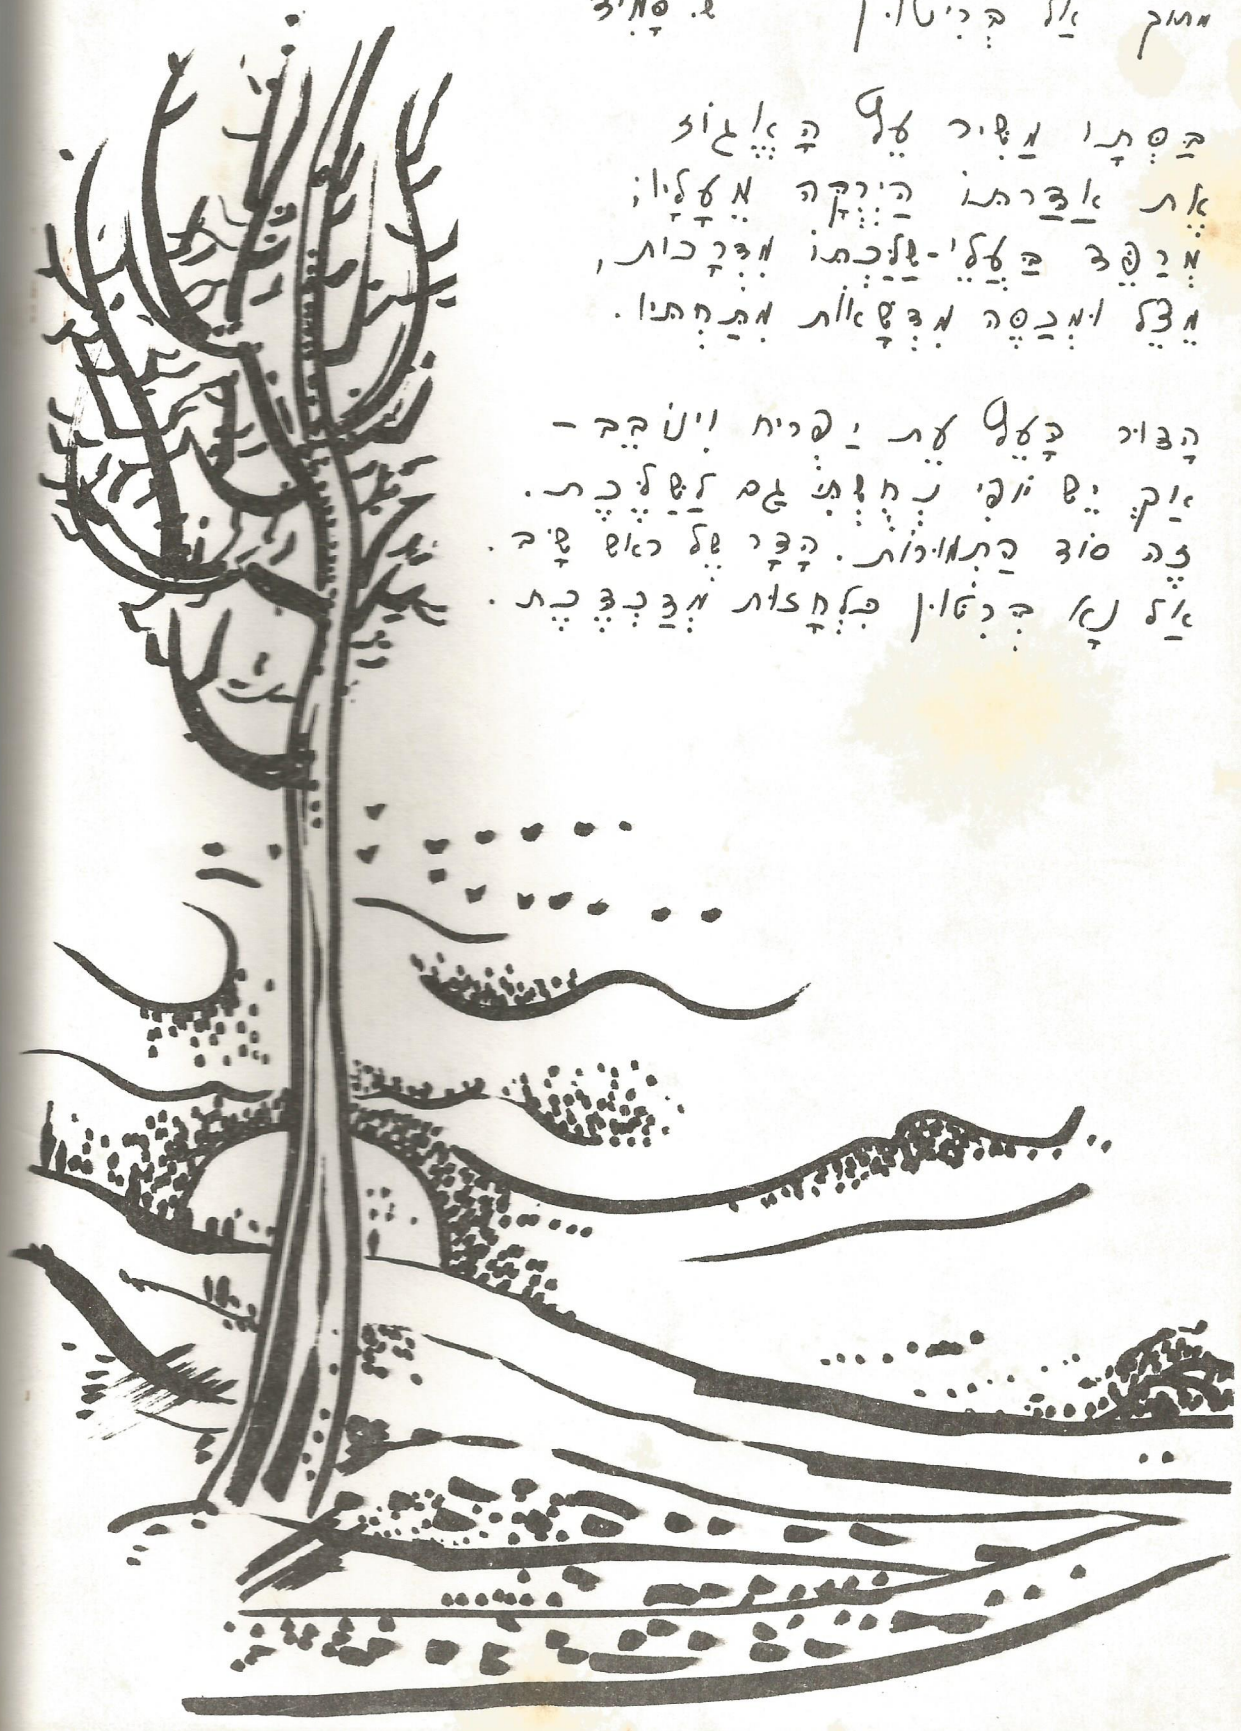 מתוך אַל בְּרִיטוּן
בַּסְּתָו מַשִּׁיר עֵץ הָאֱגוֹז
אֶת אַדַּרתּוֹ הַיְרֻקָּה מֵעָלָיו;
מְרַפֵּד בַּעֲלֵי-שַׁלַּכְתּוֹ מִדְרָכוֹת,
מֵצֵל וּמְכַסֶּה מִדְשָׁאוֹת מִתַּחְתָּיו.
הָדוּר הָעֵץ עֵת יַפְרִיח וִינוֹבֵב –
אַךְ יֵשׁ יוֹפִי נְחֻשְׁתִּי גַּם לַשַּׁלֶּכֶת.
זֶה סוֹד הַתְּמוּרוֹת. הָדָר שֶׁל ראשׁ שָׂב.
אַל נָא בְּרִטּוּן כִּלְחָזוּת מְדַכְדֶּכֶת.